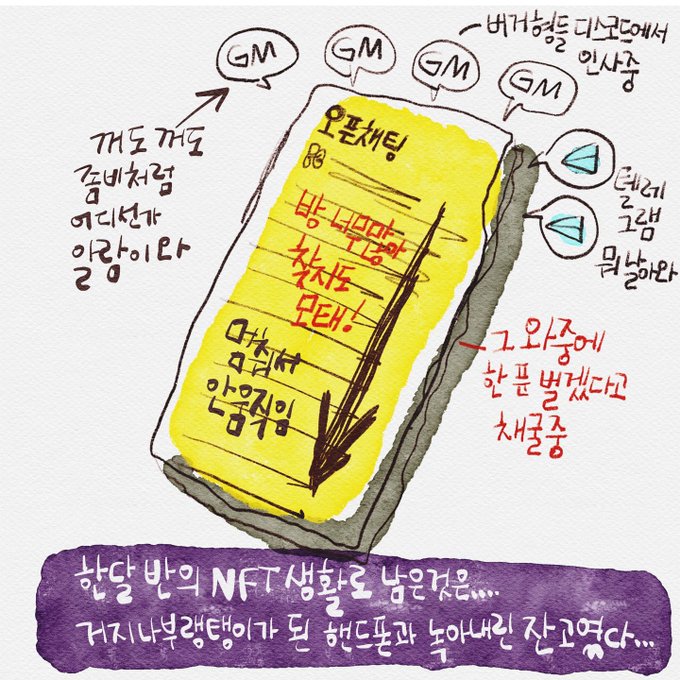 GM
GM
GM
GM
버거형들 디스코드에서
인사중
꺼도 꺼도
좀비처럼
어디선가
알람이와
오픈채팅
방 너무많아
찾지도
모태!
멈춰서
안움직임
텔레
그램
뭐 날아와
그 와중에
한 푼 벌겠다고
채굴중
한달 반의 NFT 생활로 남은것은....
거지나부랭탱이가 된 핸드폰과 녹아내린 잔고였다...